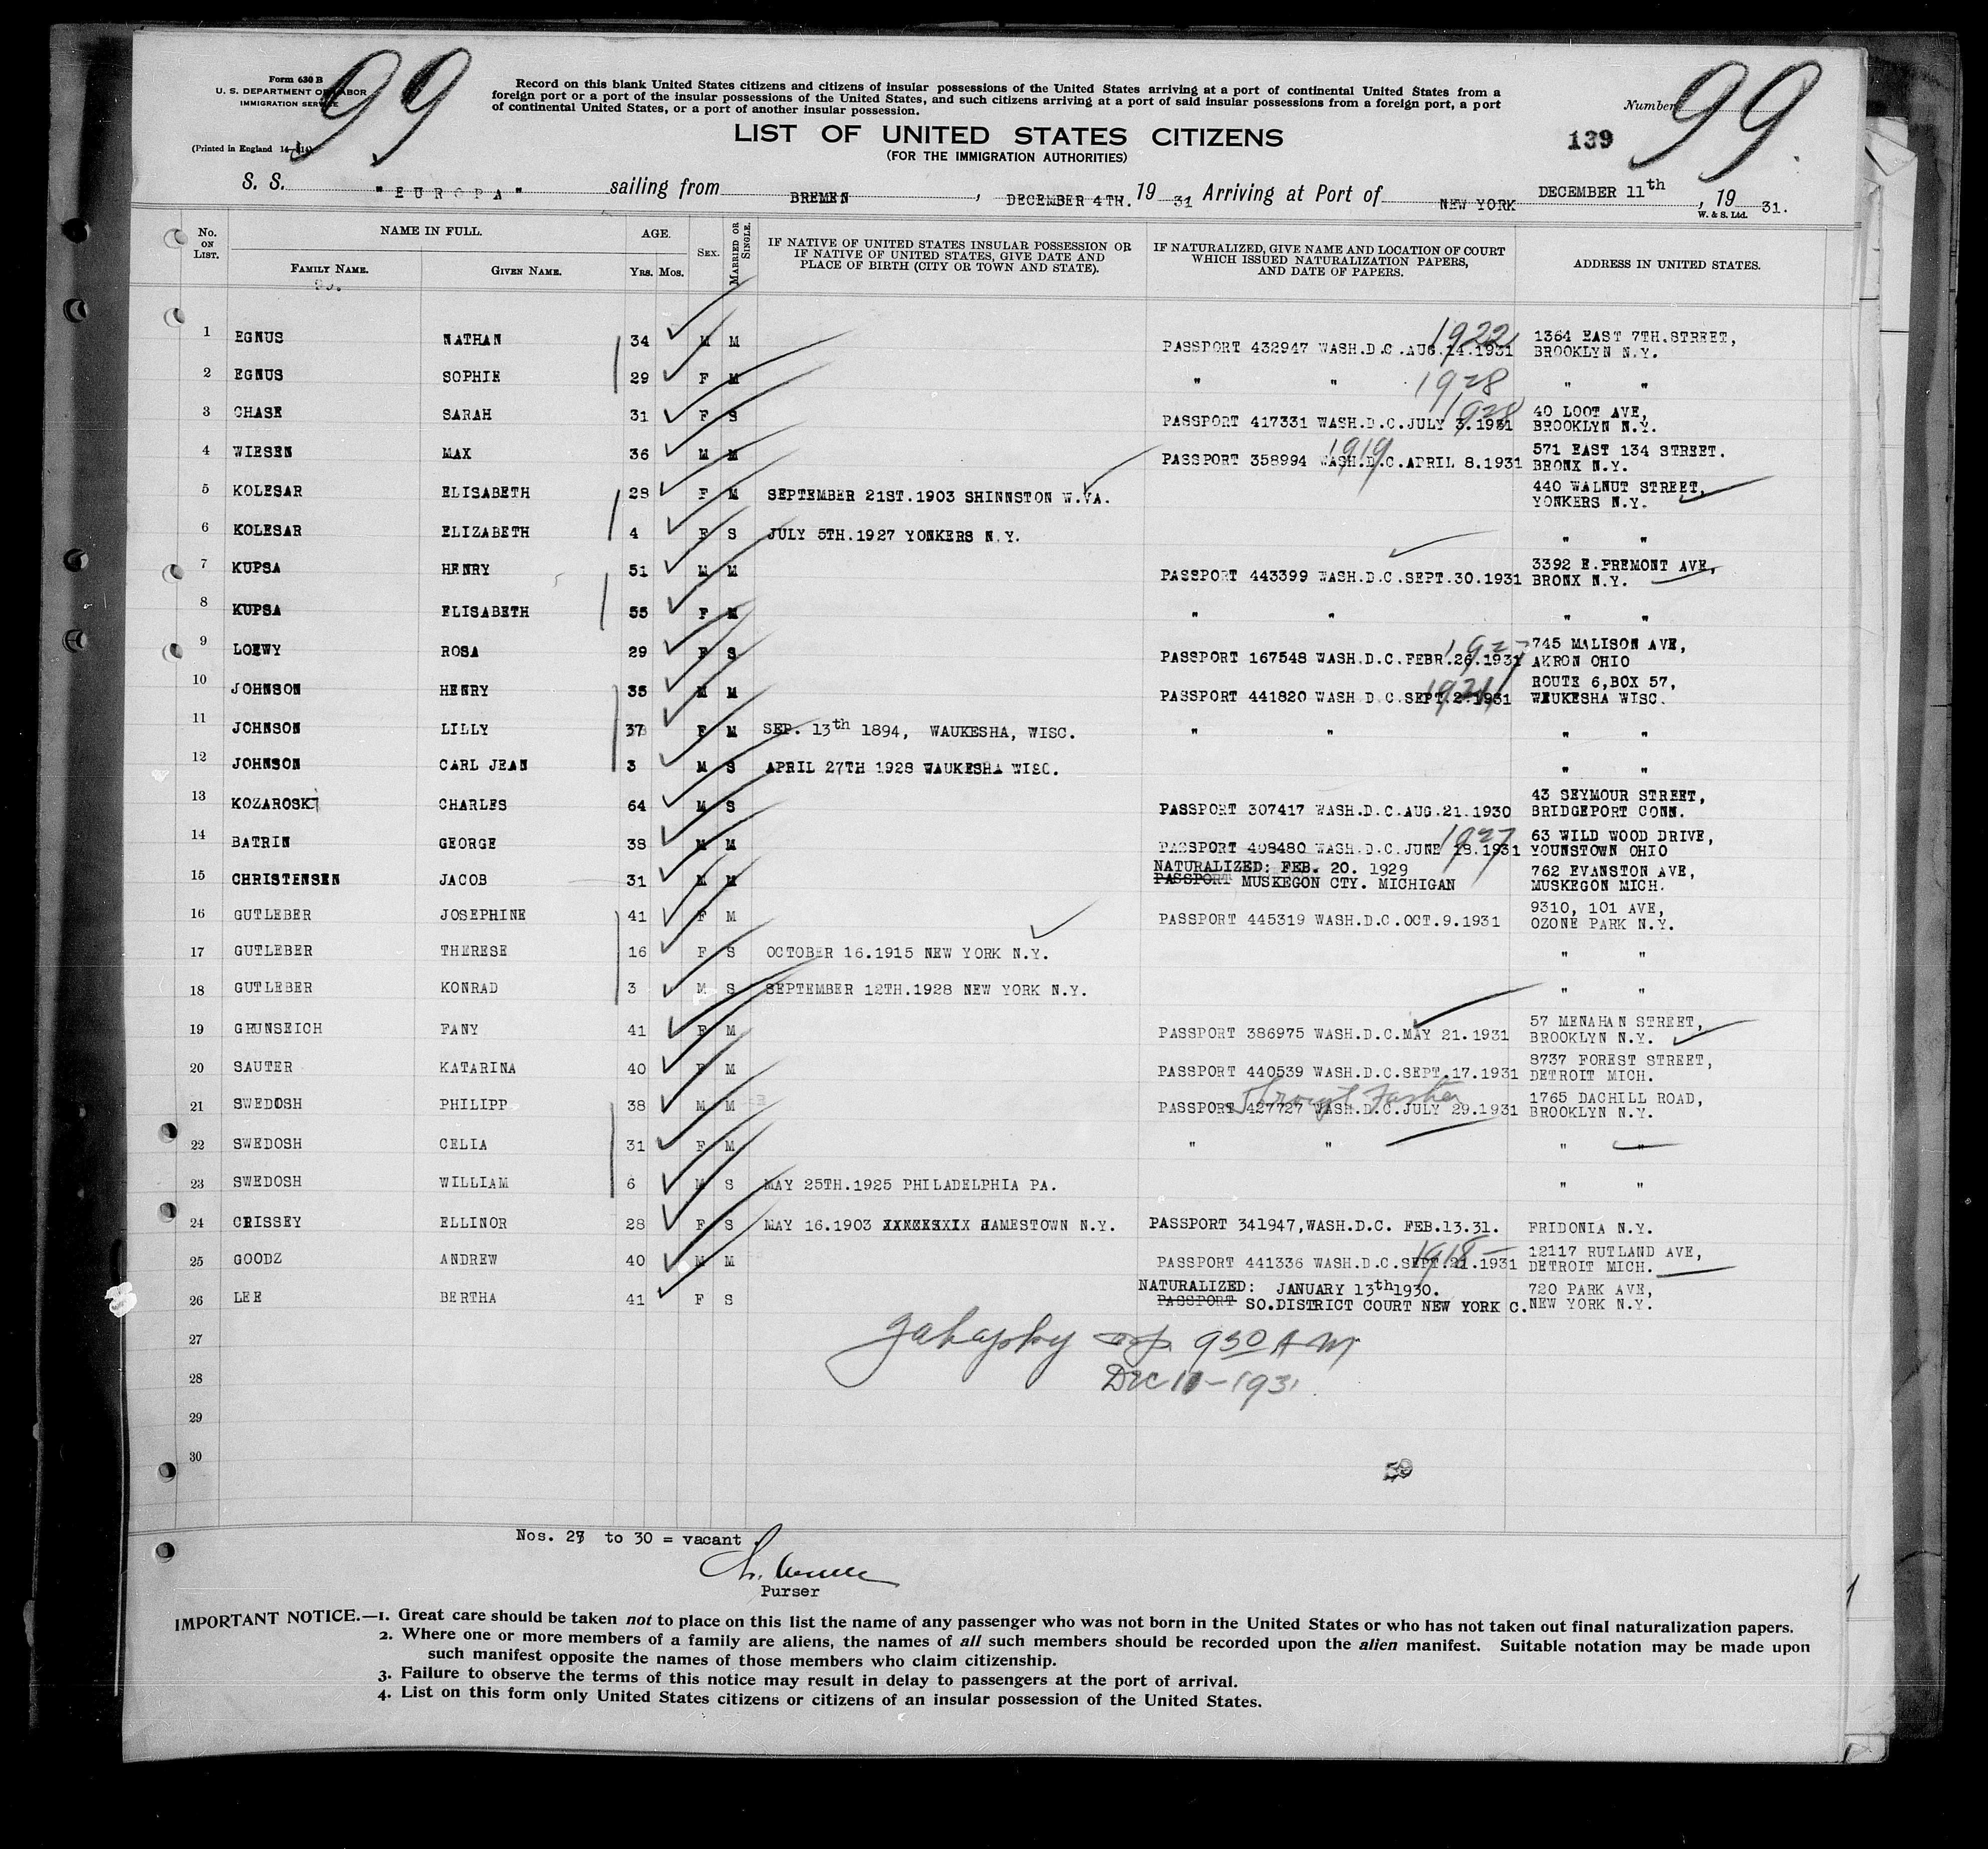 99
Form 630 B
U. S. DEPARTMENT OF LABOR
IMMIGRATION SERVICE
(Printed in England
Record on this blank United States citizens and citizens of insular possessions of the United States arriving at a port of continental United States from a
foreign port or a port of the insular possessions of the United States, and such citizens arriving at a port of said insular possessions from a foreign port, a port
of continental United States, or a port of another insular possession.
LIST OF UNITED STATES CITIZENS
(FOR THE IMMIGRATION AUTHORITIES)
Number 99
139
S. S. "EUROPA" sailing from BREMEN, DECEMBER 4TH. 19 31 Arriving at Port of NEW YORK DECEMBER 11th, 19 31.
W. & S. Ltd.
No. ON LIST.
NAME IN FULL.
FAMILY NAME. GIVEN NAME.
AGE.
YRS. MOS.
SEX.
MARRIED OR SINGLE.
IF NATIVE OF UNITED STATES INSULAR POSSESSION OR
IF NATIVE OF UNITED STATES, GIVE DATE AND
PLACE OF BIRTH (CITY OR TOWN AND STATE).
IF NATURALIZED, GIVE NAME AND LOCATION OF COURT
WHICH ISSUED NATURALIZATION PAPERS,
AND DATE OF PAPERS.
ADDRESS IN UNITED STATES.
1 EGNUS NATHAN 34 M M PASSPORT 432947 WASH.D.C.AUG.14.1931 1922 1364 EAST 7TH.STREET,
BROOKLYN N.Y.
2 EGNUS SOPHIE 29 F M " " 1928 " "
3 CHASE SARAH 31 F S PASSPORT 417331 WASH.D.C.JULY 3.1931 1928 40 LOOT AVE,
BROOKLYN N.Y.
4 WIESEN MAX 36 M M PASSPORT 358994 WASH.D.C.APRIL 8.1931 1919 571 EAST 134 STREET.
BRONX N.Y.
5 KOLESAR ELISABETH 28 F M SEPTEMBER 21ST.1903 SHINNSTON W.VA. 440 WALNUT STREET,
YONKERS N.Y.
6 KOLESAR ELIZABETH 4 F S JULY 5TH.1927 YONKERS N.Y. " "
7 KUPSA HENRY 51 M M PASSPORT 443399 WASH.D.C.SEPT.30.1931 3392 E.FREMONT AVE,
BRONX N.Y.
8 KUPSA ELISABETH 55 F M " " " "
9 LOEWY ROSA 29 F S PASSPORT 167548 WASH.D.C.FEBR.26.1931 1927 745 MALISON AVE,
AKRON OHIO
10 JOHNSON HENRY 35 M M PASSPORT 441820 WASH.D.C.SEPT.2.1931 1921 ROUTE 6,BOX 57,
WAUKESHA WISC.
11 JOHNSON LILLY 37 F M SEP. 13th 1894, WAUKESHA, WISC. " " " "
12 JOHNSON CARL JEAN 3 M S APRIL 27TH 1928 WAUKESHA WISC. " "
13 KOZAROSKI CHARLES 64 M S PASSPORT 307417 WASH.D.C.AUG.21.1930 43 SEYMOUR STREET,
BRIDGEPORT CONN.
14 BATRIN GEORGE 38 M M PASSPORT 408480 WASH.D.C.JUNE 18.1931 1927 63 WILD WOOD DRIVE,
YOUNSTOWN OHIO
15 CHRISTENSEN JACOB 31 M M NATURALIZED: FEB. 20. 1929
PASSPORT MUSKEGON CTY. MICHIGAN 762 EVANSTON AVE,
MUSKEGON MICH.
16 GUTLEBER JOSEPHINE 41 F M PASSPORT 445319 WASH.D.C.OCT.9.1931 9310, 101 AVE,
OZONE PARK N.Y.
17 GUTLEBER THERESE 16 F S OCTOBER 16.1915 NEW YORK N.Y. " "
18 GUTLEBER KONRAD 3 M S SEPTEMBER 12TH.1928 NEW YORK N.Y. " "
19 GRUNSEICH FANY 41 F M PASSPORT 386975 WASH.D.C.MAY 21.1931 57 MENAHAN STREET,
BROOKLYN N.Y.
20 SAUTER KATARINA 40 F M PASSPORT 440539 WASH.D.C.SEPT.17.1931 8737 FOREST STREET,
DETROIT MICH.
21 SWEDOSH PHILIPP 38 M M PASSPORT 427727 WASH.D.C.JULY 29.1931 Through Father 1765 DACHILL ROAD,
BROOKLYN N.Y.
22 SWEDOSH CELIA 31 F M " " " "
23 SWEDOSH WILLIAM 6 M S MAY 25TH.1925 PHILADELPHIA PA. " "
24 CRISSEY ELLINOR 28 F S MAY 16.1903 JAMESTOWN N.Y. PASSPORT 341947,WASH.D.C. FEB.13.31. FRIDONIA N.Y.
25 GOODZ ANDREW 40 M M PASSPORT 441336 WASH.D.C.SEPT.21.1931 1918 12117 RUTLAND AVE,
DETROIT MICH.
26 LEE BERTHA 41 F S NATURALIZED: JANUARY 13th1930.
PASSPORT SO.DISTRICT COURT NEW YORK C. 720 PARK AVE,
NEW YORK N.Y.
27
930 AM
28 Dec 11-1931
29
30
59
Nos. 27 to 30 = vacant
Purser
IMPORTANT NOTICE.—1. Great care should be taken not to place on this list the name of any passenger who was not born in the United States or who has not taken out final naturalization papers.
2. Where one or more members of a family are aliens, the names of all such members should be recorded upon the alien manifest. Suitable notation may be made upon
such manifest opposite the names of those members who claim citizenship.
3. Failure to observe the terms of this notice may result in delay to passengers at the port of arrival.
4. List on this form only United States citizens or citizens of an insular possession of the United States.